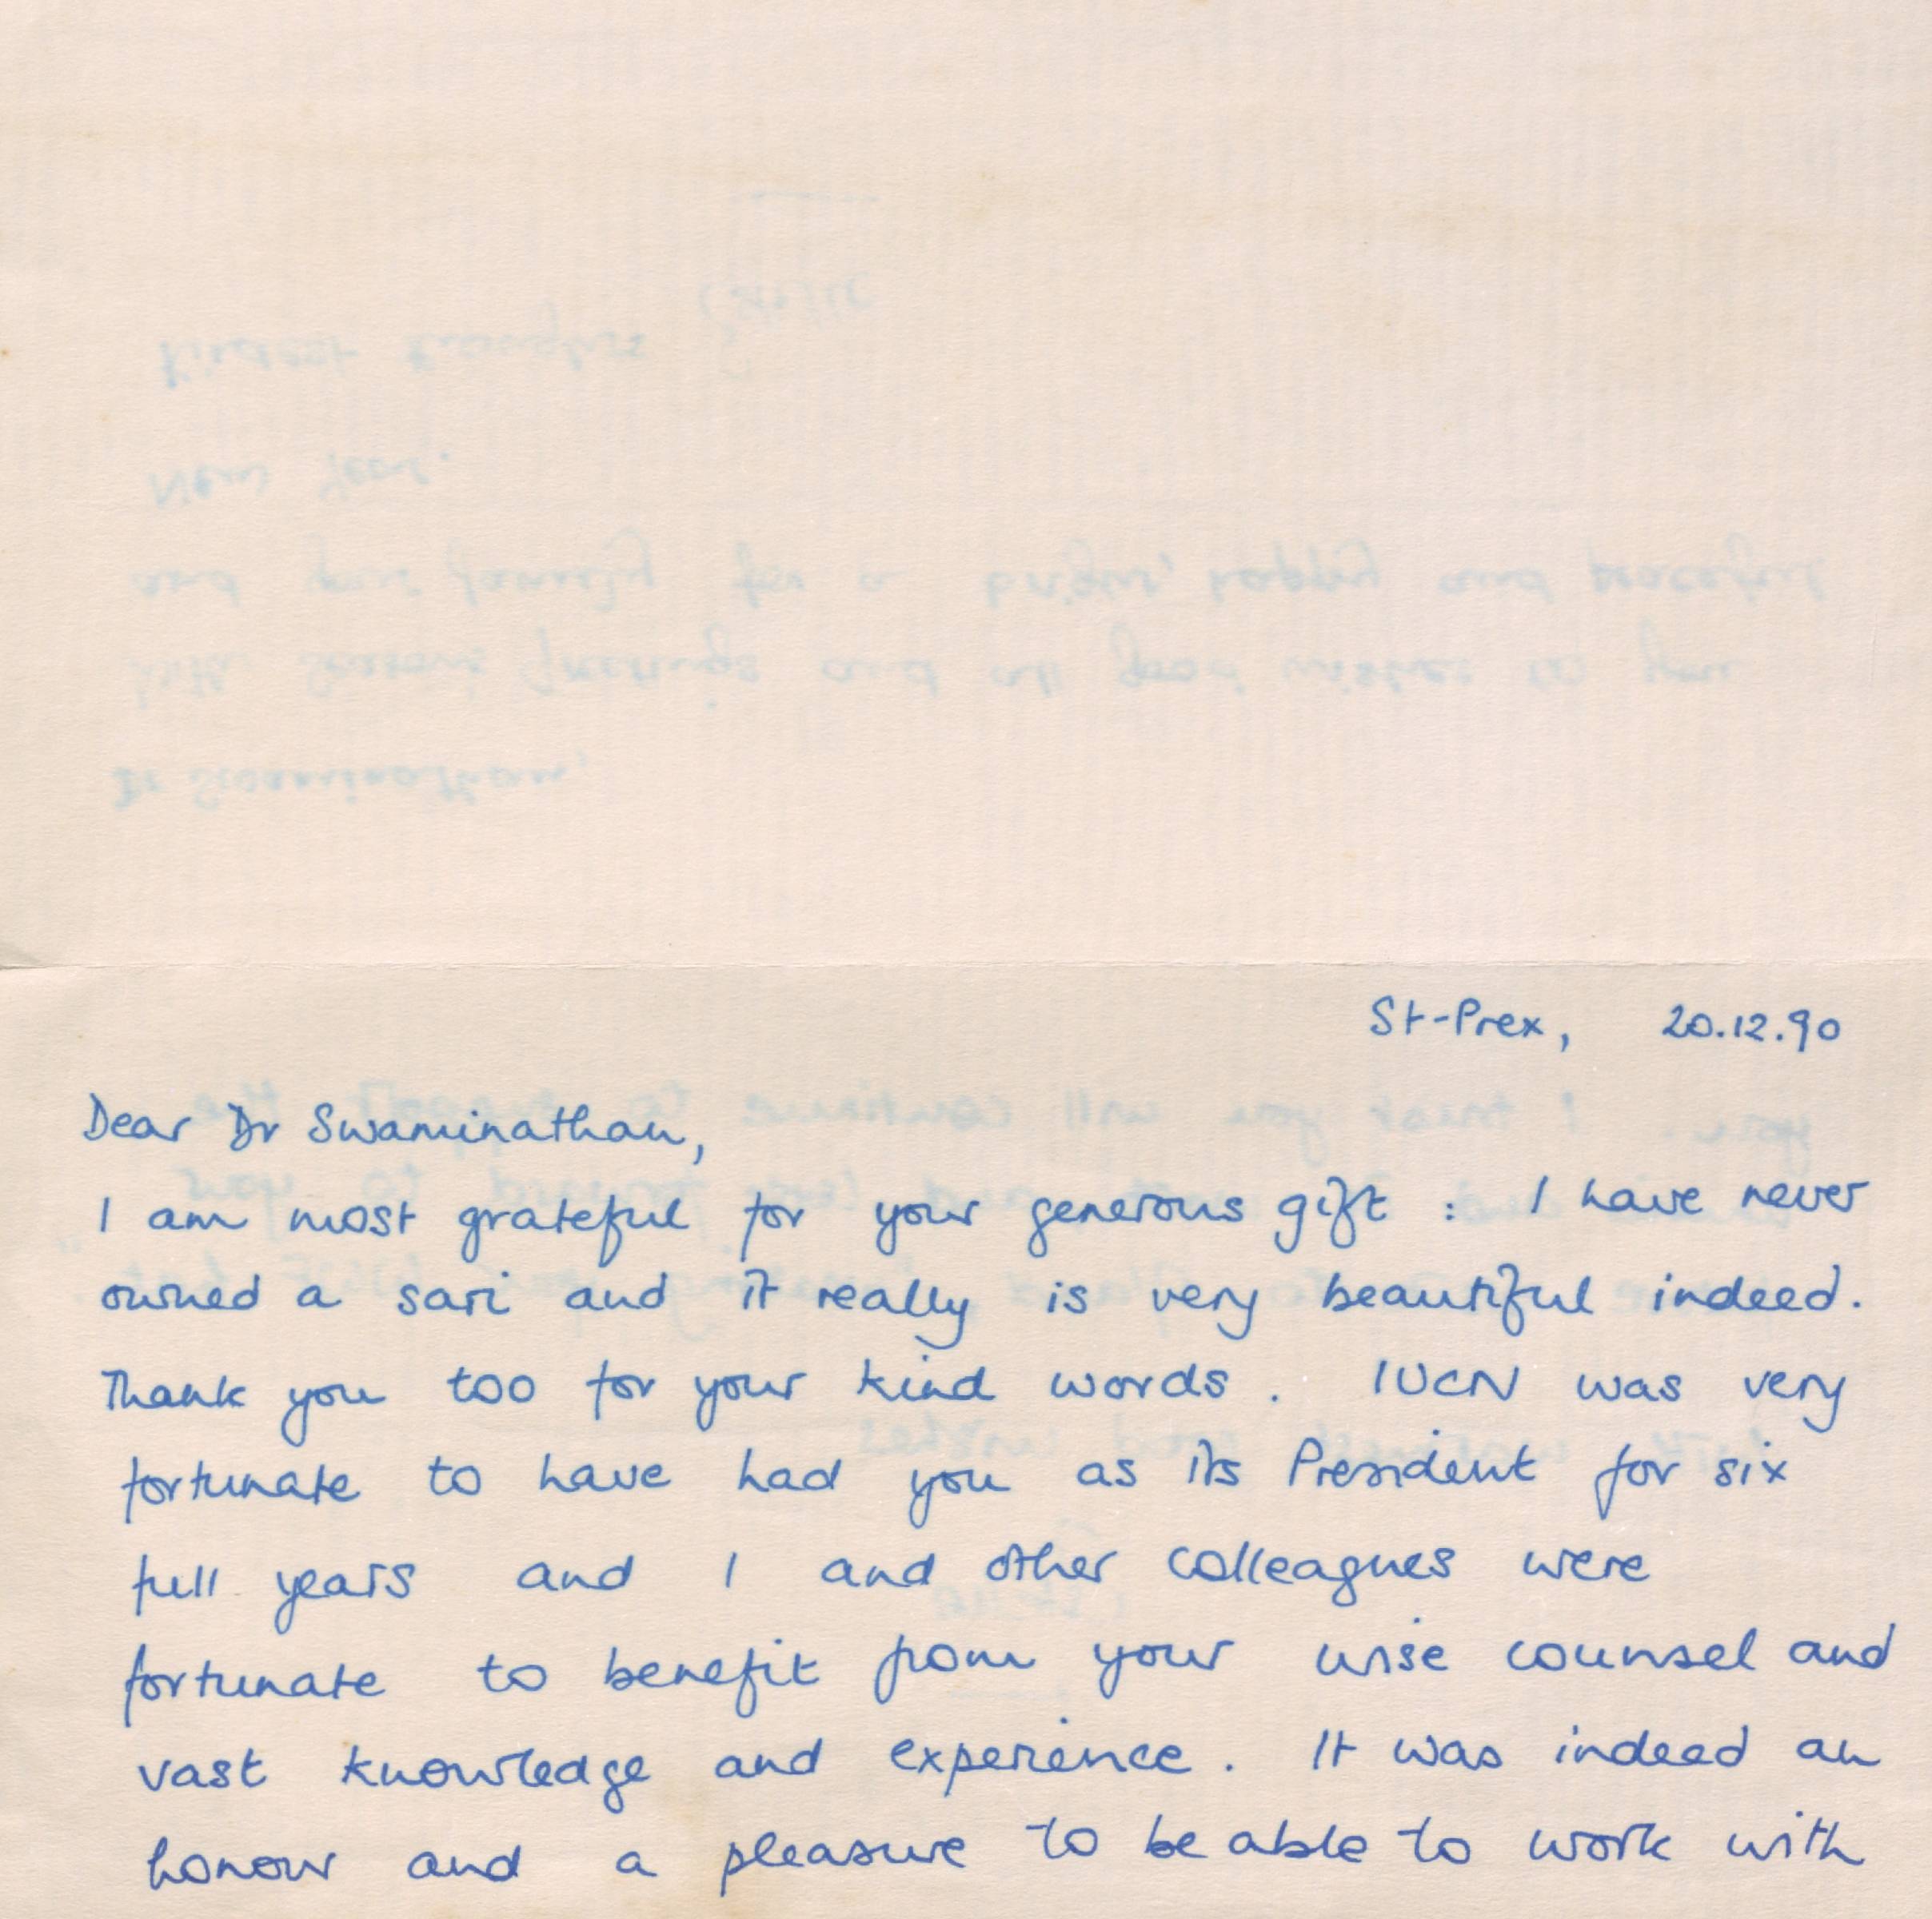 St-Prex, 20.12.90
Dear Dr Swaminathan,
I am most grateful for your generous gift : I have never
owned a sari and it really is very beautiful indeed.
Thank you too for your kind words. IUCN was very
fortunate to have had you as its President for six
full years and I and other colleagues were
fortunate to benefit from your wise counsel and
vast knowledge and experience. It was indeed an
honour and a pleasure to be able to work with